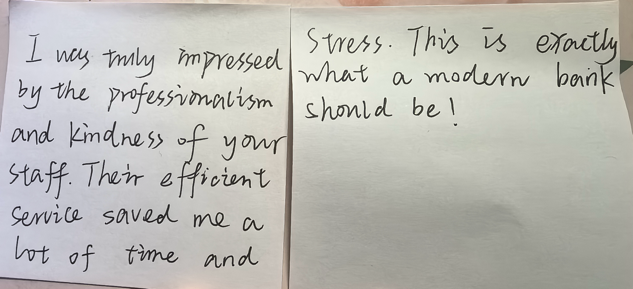 I was truly impressed
by the professionalism
and kindness of your
staff. Their efficient
service saved me a
lot of time and
Stress. This is exactly
what a modern bank
should be!